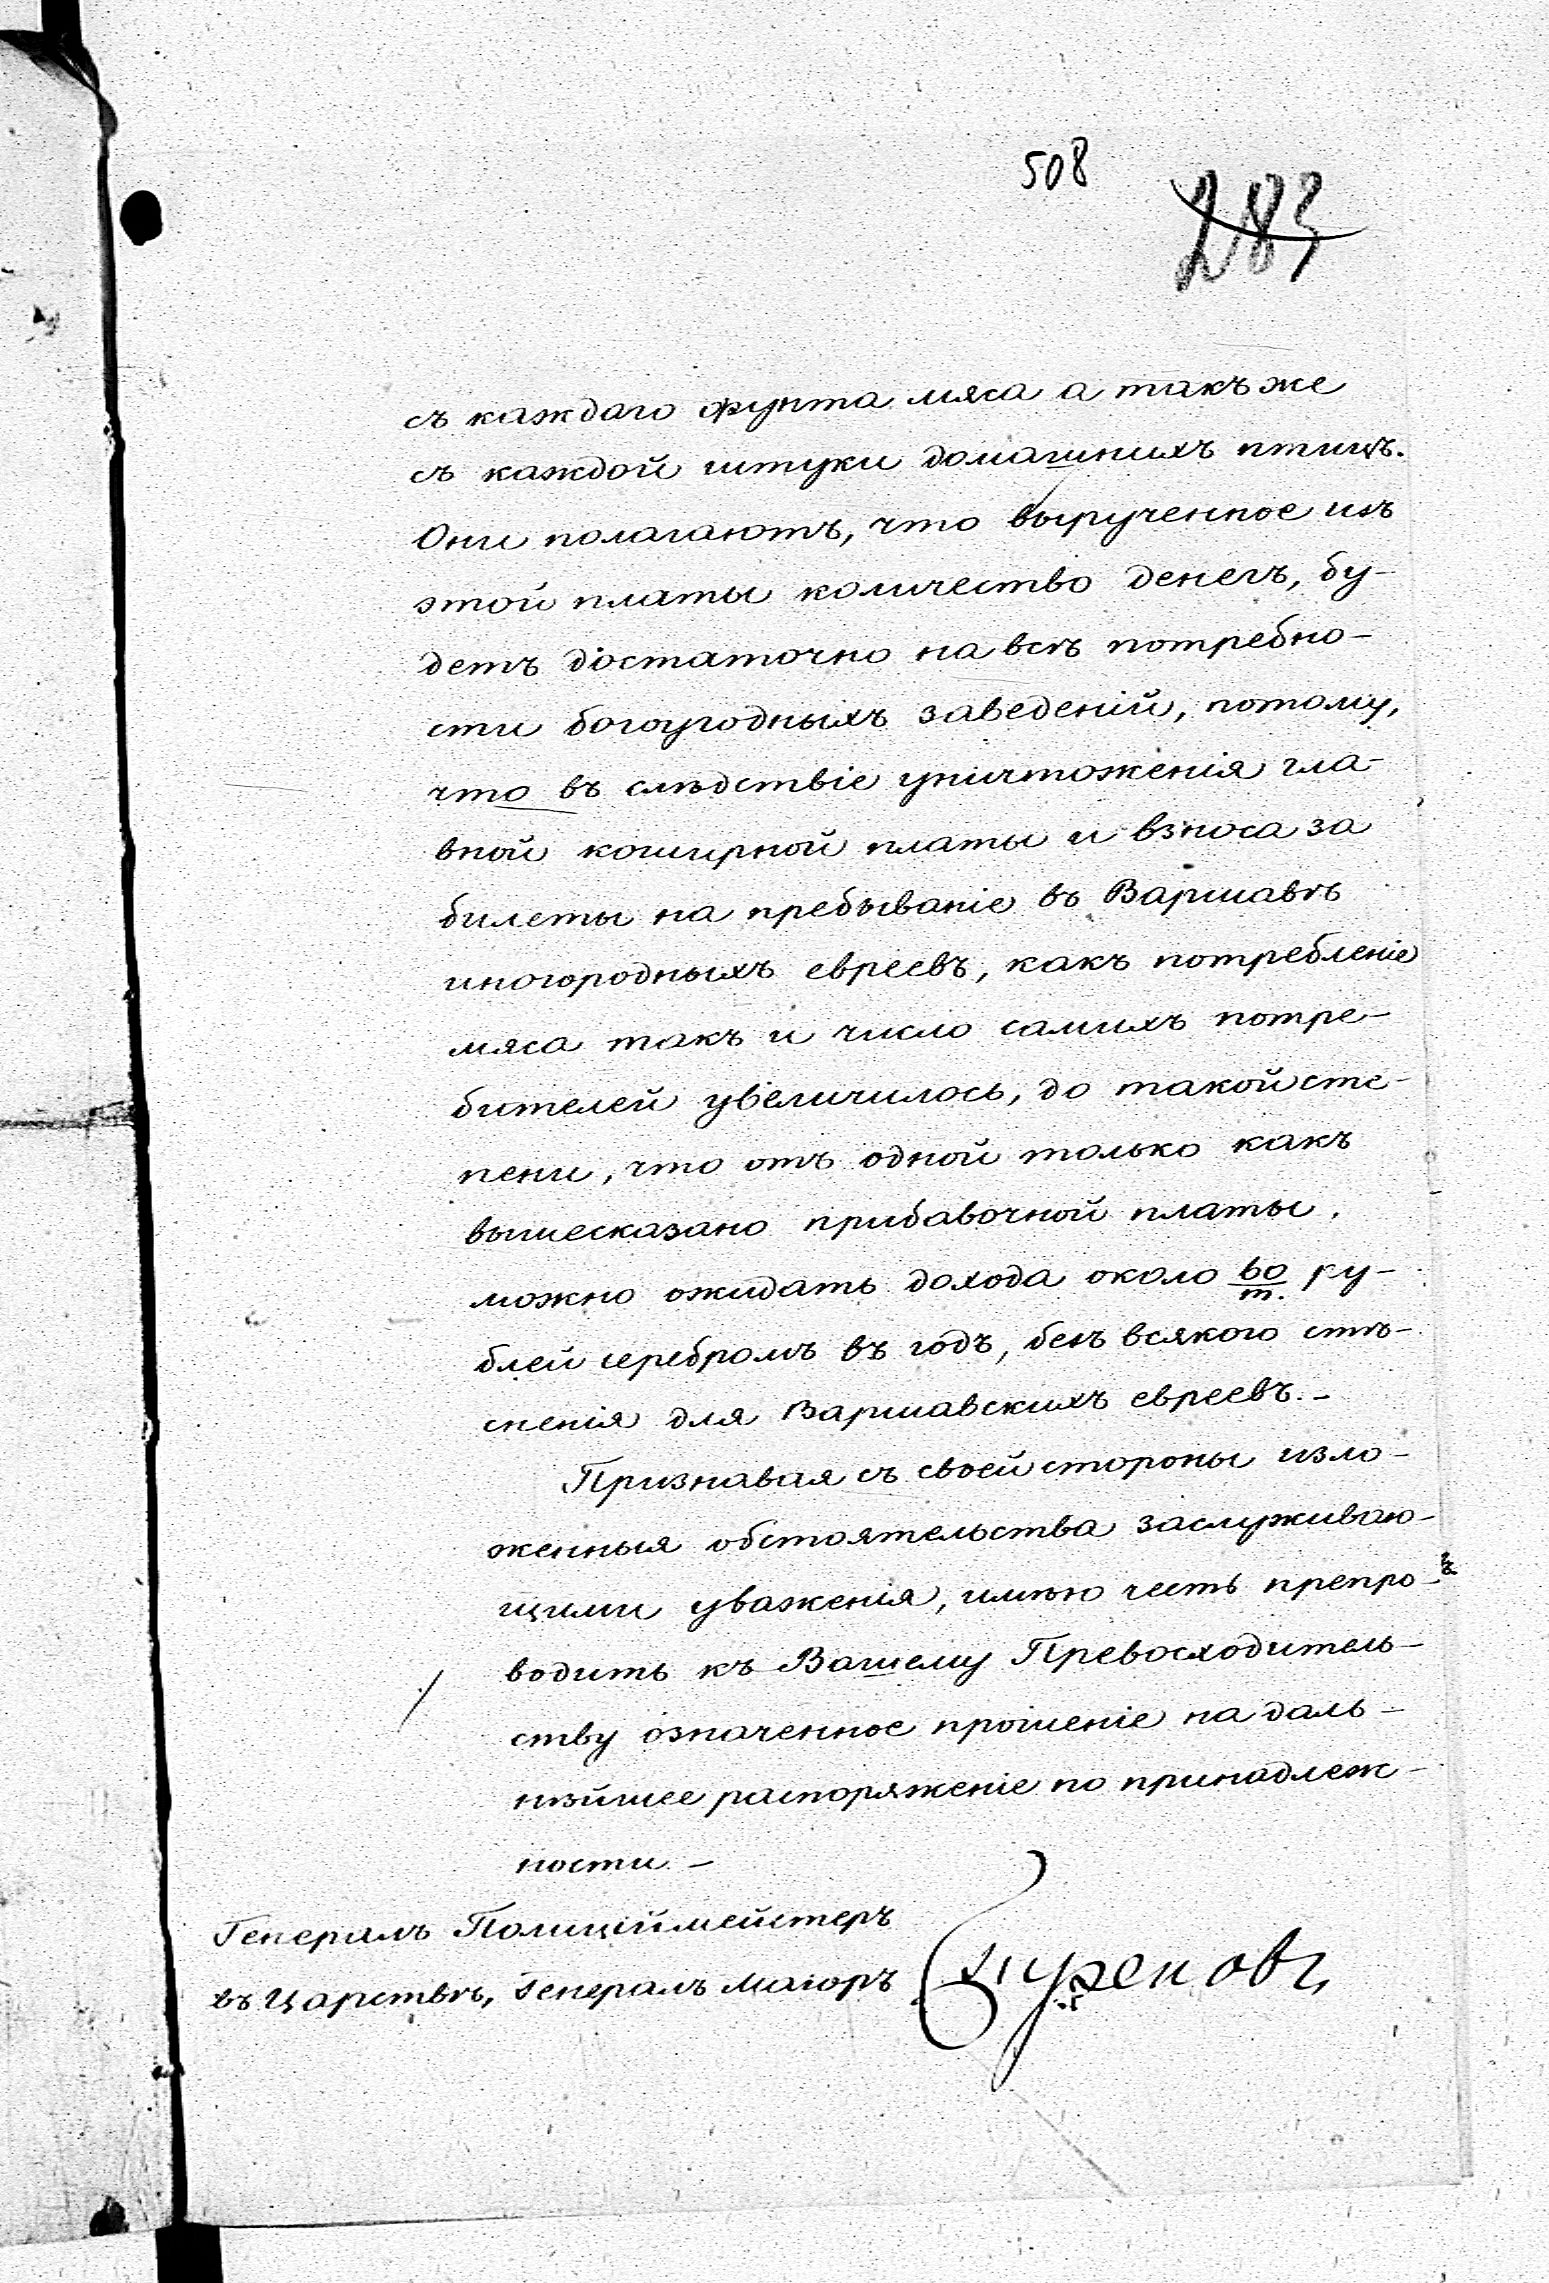 508
283
съ каждаго фунта мяса а такъ же
съ каждой штуки домашнихъ птицъ.
Они полагаютъ, что вырученное изъ
этой платы количество денегъ, бу-
детъ достаточно на всѣ потребно-
сти богоугодныхъ заведеній, потому,
что въ слѣдствіе уничтоженія гла-
вной коширной платы и взноса за
билеты на пребываніе въ Варшавѣ
иногородныхъ евреевъ, какъ потребленіе
мяса такъ и число самихъ потре-
бителей увеличилось, до такой сте-
пени, что отъ одной только какъ
вышесказано прибавочной платы,
можно ожидать дохода около 60/т. ру-
блей серебромъ въ годъ, безъ всякого стѣ-
сненія для Варшавскихъ евреевъ.-
Признавая съ своей стороны изло-
женныя обстоятельства заслуживаю-
щими уваженія, имѣю честь препро-
водить къ Вашему Превосходитель-
ству означенное прошеніе на даль-
нѣйшее распоряженіе по принадлеж-
ности-
Генералъ Полиціймейстеръ
въ Царствѣ, Генералъ Маіоръ